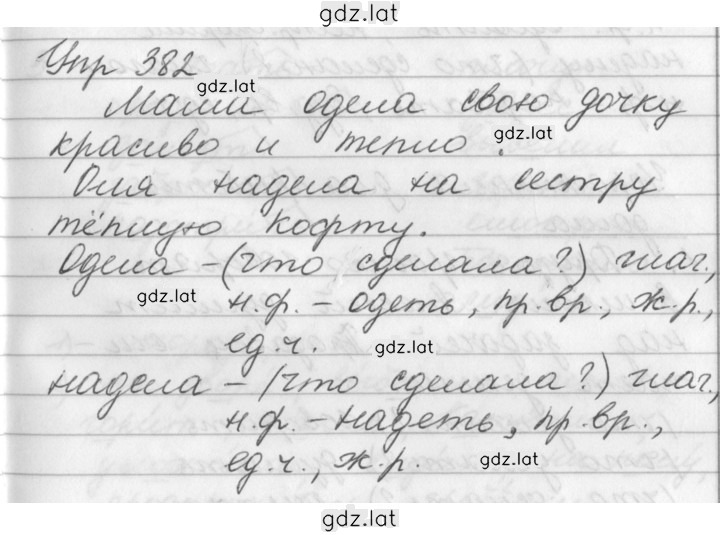 gdz.lat
Упр 382
gdz.lat
Мама одела свою дочку
gdz.lat
красиво и тепло.
Оля надела на сестру
тёплую кофту.
Одела – (что сделала?) глаг.,
gdz.lat
н.ф. – одеть, пр.вр., ж.р.,
ед.ч.
gdz.lat
надела – (что сделала?) глаг.,
н.ф. – надеть, пр.вр.,
ед.ч., ж.р.
gdz.lat
gdz.lat